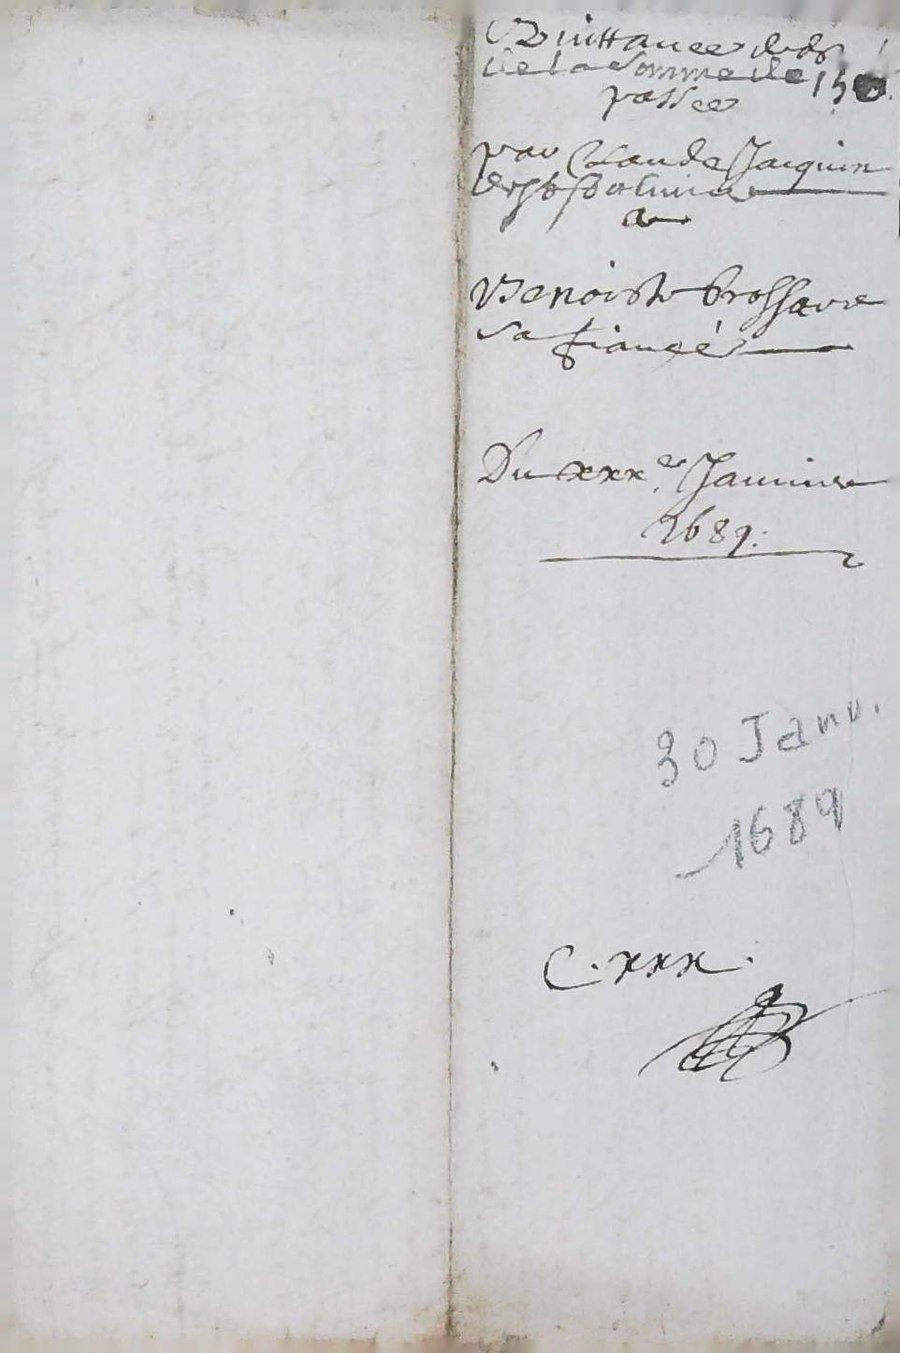 Quittance de
de la Somme de 150
passée
par Claude Jacquin
a
Benoiste brossare
sa fiancé
Du xxx.e Januier
1689.
30 Janv.
1689
C. xxx.